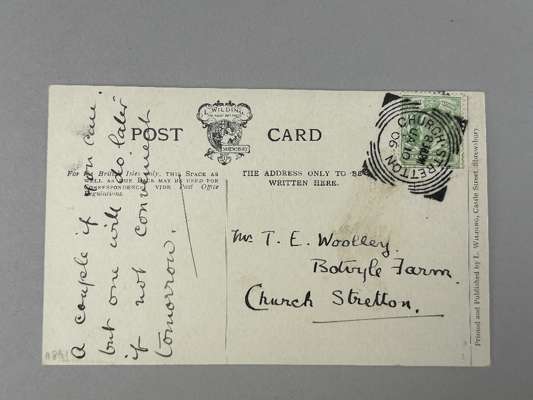 A couple if you can.
but one will do later
if not convenient
tomorrow.
L. WILDING
SHREWSBURY
POST CARD
For the British Isles only, THIS SPACE AS
WELL AS THE BACK MAY BE USED FOR
CORRESPONDENCE, VIDE Post Office
Regulations.
THE ADDRESS ONLY TO BE
WRITTEN HERE.
CHURCH STRETTON
Mr T. E. Woolley.
Botvyle Farm.
Church Stretton.
Printed and Published by L. WILDING, Castle Street, Shrewsbury.